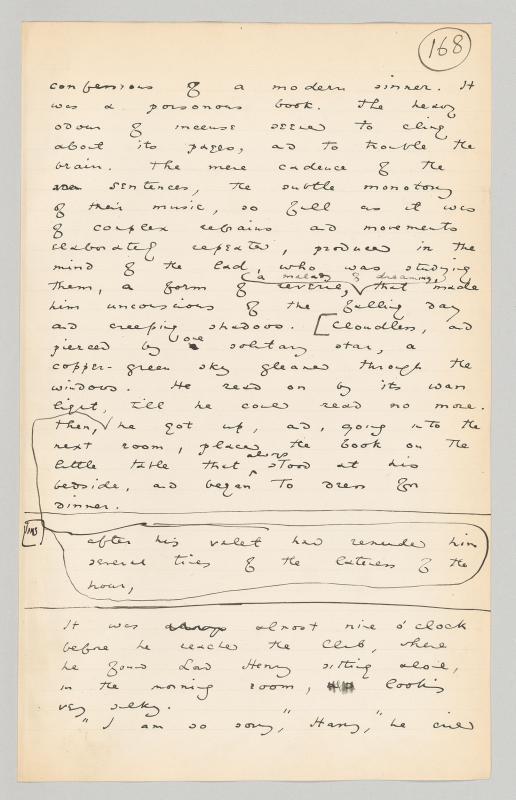 168
confessions of a modern sinner. It
was a poisonous book. The heavy
odour of incense seemed to cling
about its pages, and to trouble the
brain. The mere cadence of the
sentences, the subtle monotony
of their music, so full as it was
of complex refrains and movements
elaborately repeated, produced in the
mind of the lad, who was studying
a malady of dreaming,
them, a form of reverie, that made
him unconscious of the falling day
and creeping shadows. [Cloudless, and
one
pierced by solitary star, a
copper-green sky gleamed through the
windows. He read on by its wan
light, till he could read no more.
Then, he got up, and, going into the
next room, placed the book on the
always
little table that stood at his
bedside, and began to dress for
dinner.
after his valet had reminded him
several times of the lateness of the
hour,
It was almost nine o'clock
before he reached the Club, where
he found Lord Henry sitting alone,
in the morning room, looking
very sulky.
"I am so sorry," Harry," he cried